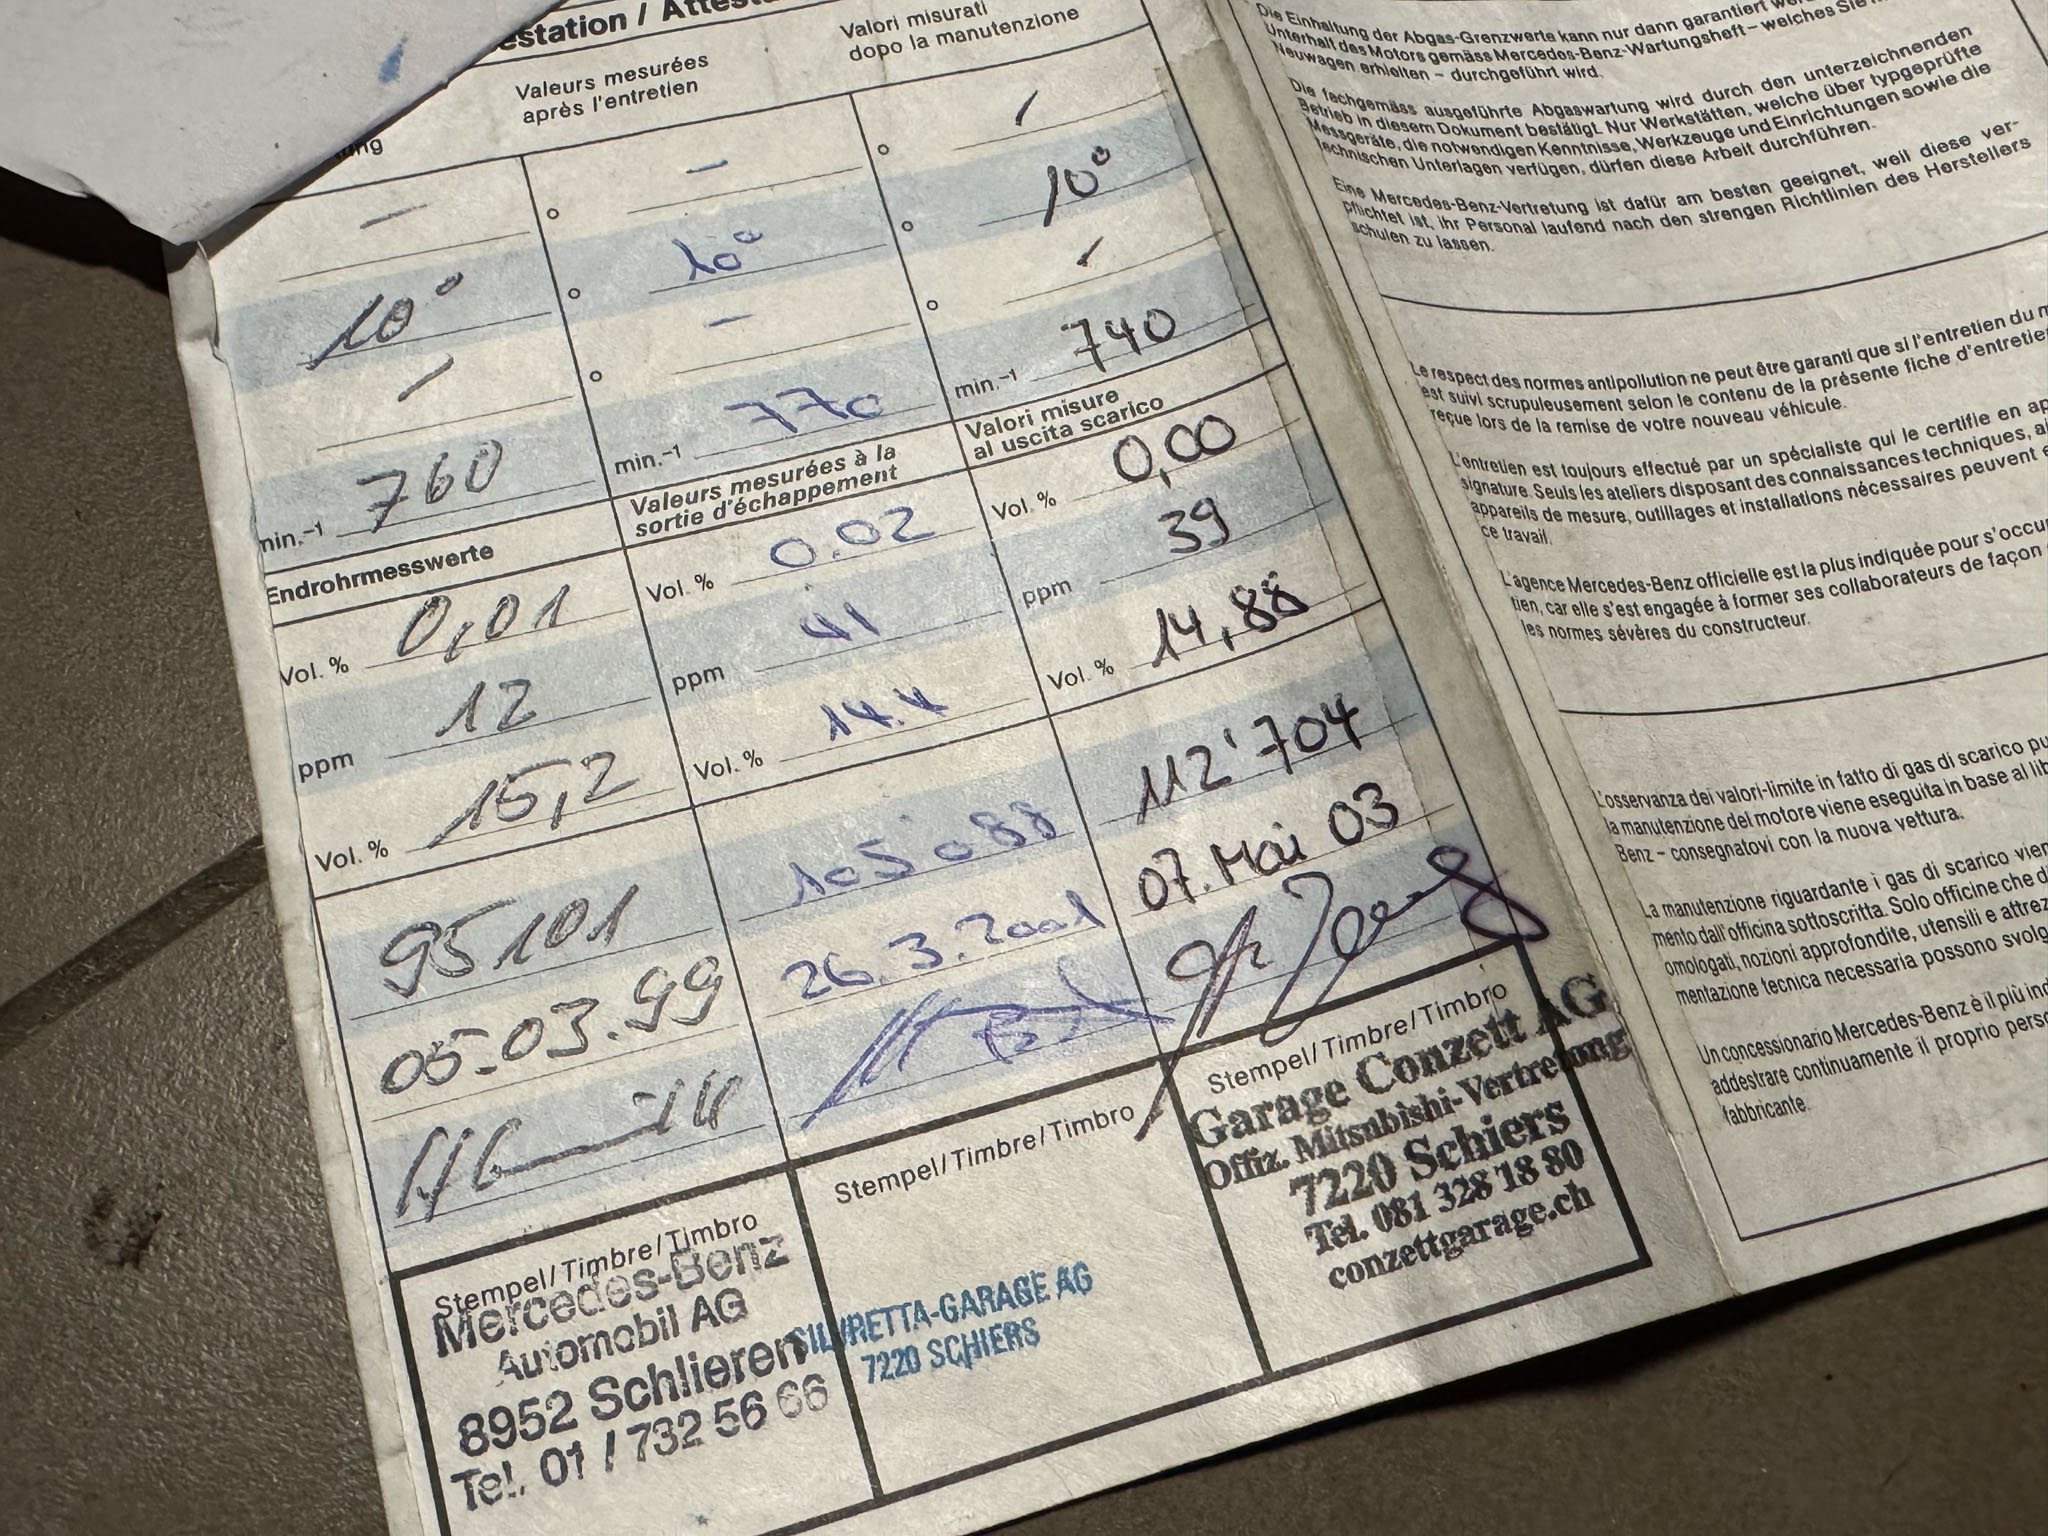 Valeurs mesurées
après l'entretien
Valori misurati
dopo la manutenzione
–
–
/
10°
10°
10°
/
–
/
760
min.-1 770
min.-1 740
Endrohrmesswerte
Valeurs mesurées à la
sortie d'échappement
Valori misure
al uscita scarico
Vol. % 0,01
Vol. % 0.02
Vol. % 0,00
ppm 12
ppm 41
ppm 39
Vol. % 15,2
Vol. % 14.4
Vol. % 14,88
95101
105'088
112'704
05.03.99
26.3.2001
07.Mai 03
Stempel/Timbre/Timbro
Mercedes-Benz
Automobil AG
8952 Schlieren
Tel. 01 / 732 56 66
Stempel/Timbre/Timbro
SILVRETTA-GARAGE AG
7220 SCHIERS
Stempel/Timbre/Timbro
Garage Conzett AG
Offiz. Mitsubishi-Vertretung
7220 Schiers
Tel. 081 328 18 80
conzettgarage.ch
Die Einhaltung der Abgas-Grenzwerte kann nur dann garantiert
Unterhalt des Motors gemäss Mercedes-Benz-Wartungsheft – welches Sie
Neuwagen erhielten – durchgeführt wird.
Die fachgemäss ausgeführte Abgaswartung wird durch den unterzeichnenden
Betrieb in diesem Dokument bestätigt. Nur Werkstätten, welche über typgeprüfte
Messgeräte, die notwendigen Kenntnisse, Werkzeuge und Einrichtungen sowie die
technischen Unterlagen verfügen, dürfen diese Arbeit durchführen.
Eine Mercedes-Benz-Vertretung ist dafür am besten geeignet, weil diese ver-
pflichtet ist, ihr Personal laufend nach den strengen Richtlinien des Herstellers
schulen zu lassen.
Le respect des normes antipollution ne peut être garanti que si l'entretien du
est suivi scrupuleusement selon le contenu de la présente fiche
reçue lors de la remise de votre nouveau véhicule.
L'entretien est toujours effectué par un spécialiste qui le certifie en
signature. Seuls les ateliers disposant des connaissances techniques,
appareils de mesure, outillages et installations nécessaires peuvent
ce travail.
L'agence Mercedes-Benz officielle est la plus indiquée pour
tien, car elle s'est engagée à former ses collaborateurs de façon
les normes sévères du constructeur.
L'osservanza dei valori-limite in fatto di gas di scarico
la manutenzione del motore viene eseguita in base al
Benz – consegnatovi con la nuova vettura.
La manutenzione riguardante i gas di scarico
mento dall'officina sottoscritta. Solo officine che
omologati, nozioni approfondite, utensili e
mentazione tecnica necessaria possono
Un concessionario Mercedes-Benz è il più
addestrare continuamente il proprio
fabbricante.